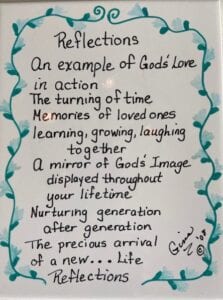 Reflections
An example of Gods' Love
in action
The turning of time
Memories of loved ones
learning, growing, laughing
together
A mirror of God's Image
displayed throughout
your lifetime
Nurturing generation
after generation
The precious arrival
of a new... Life
Reflections